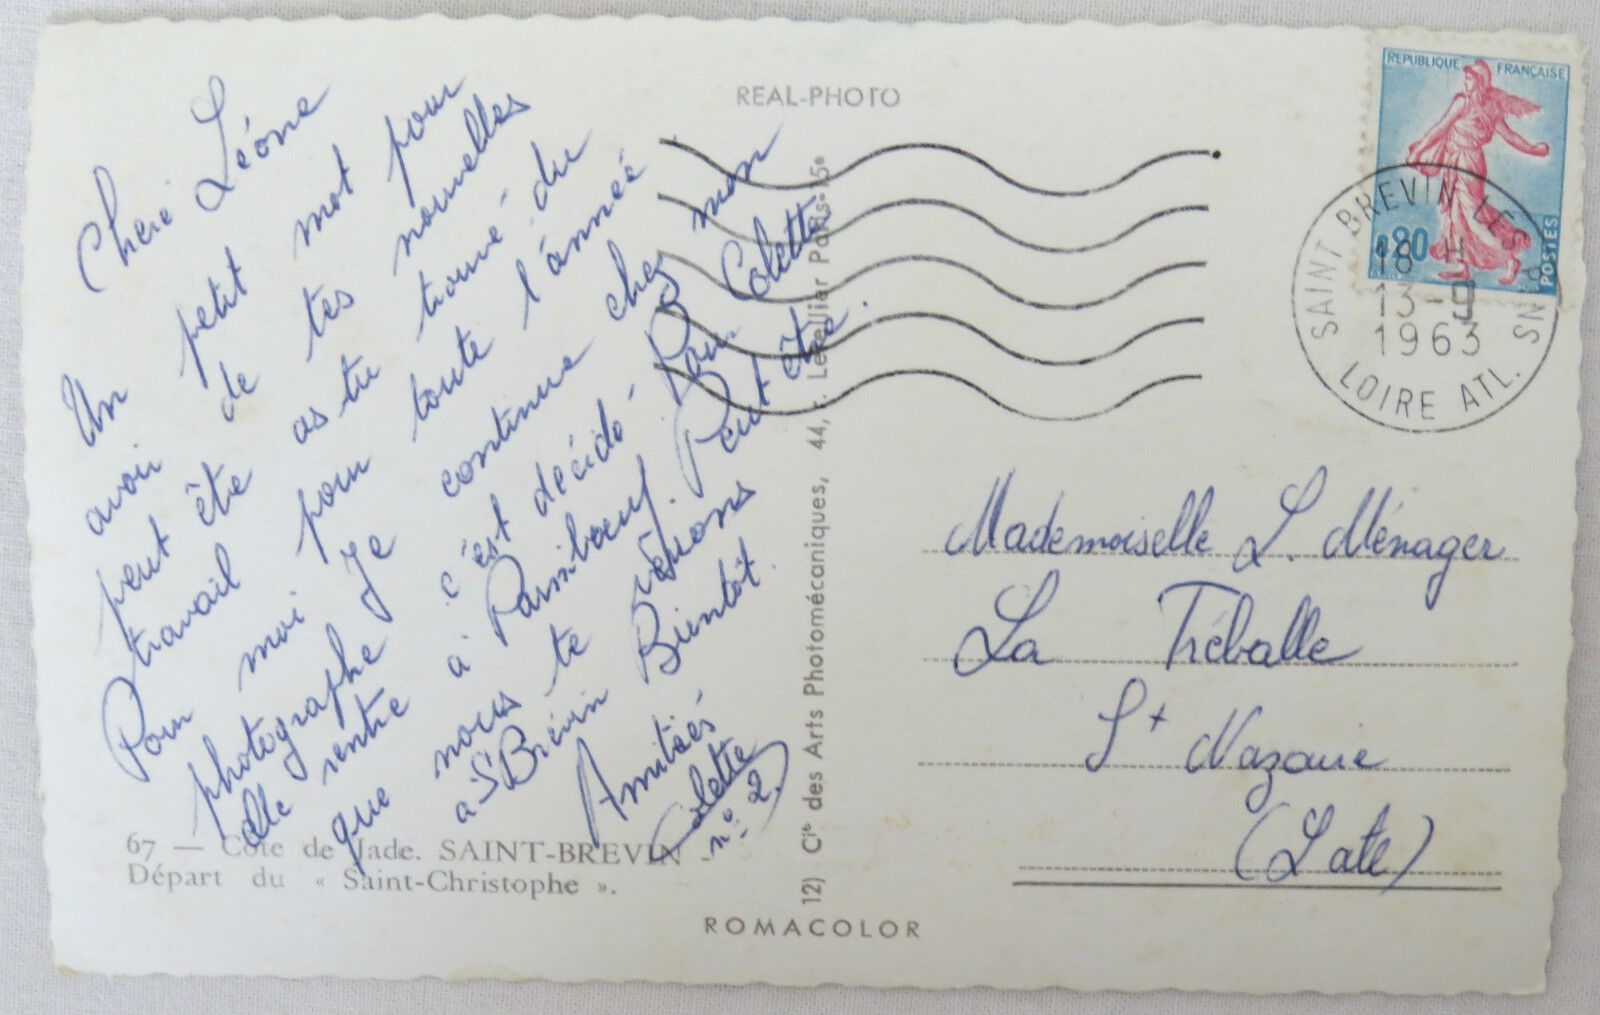 Cherie Léone
Un petit mot pour
avoir de tes nouvelles
peut être as tu trouvé du
travail pour toute l'année
Pour moi je continue chez mon
photographe c'est décidé - Pour Colette
elle rentre à Paimboeuf. Peut être
que nous te reverrons
a St Brévin Bientôt.
Amitiés
Colette
n° 2
67 — Côte de Jade. SAINT-BREVIN -
Départ du « Saint-Christophe ».
REAL-PHOTO
12) Cie des Arts Photomécaniques, 44, r. Letellier Paris-15e
ROMACOLOR
REPUBLIQUE FRANÇAISE
0,20
POSTES
SAINT BREVIN LES PINS
18 H
13-9
1963
LOIRE ATL.
Mademoiselle L. Ménager
La Tréballe
St Nazaire
(L.ate)